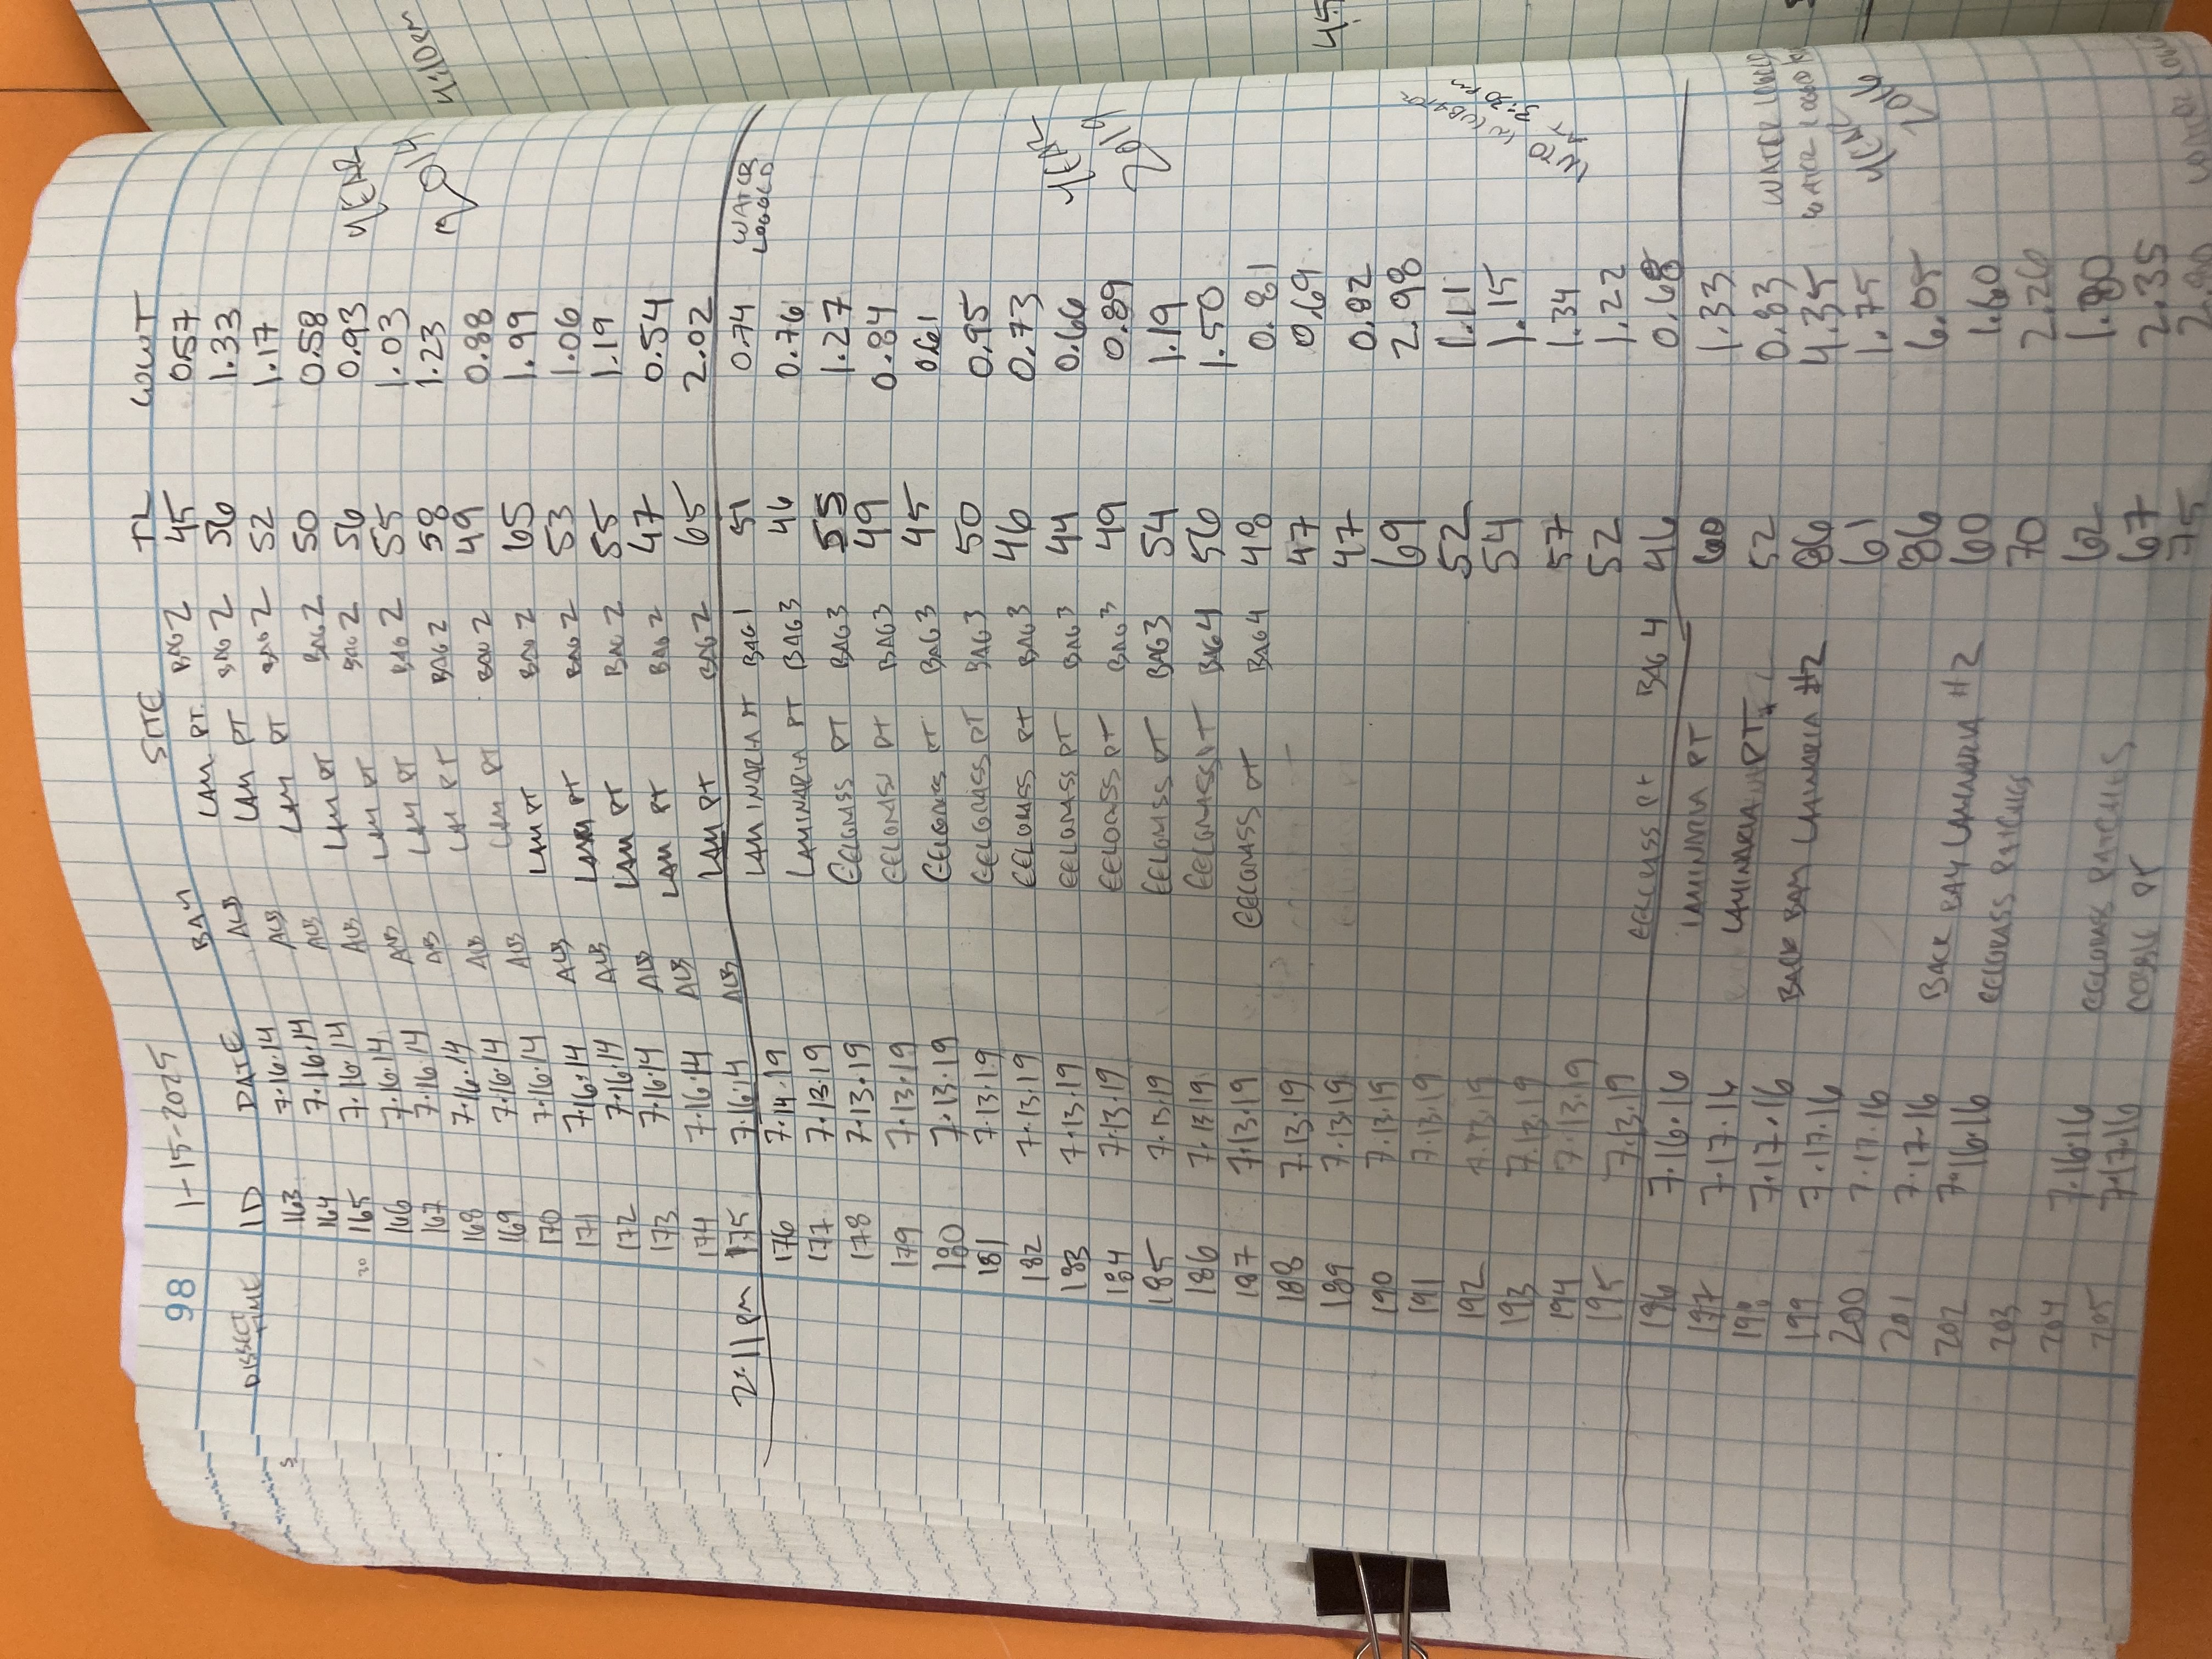 98 1-15-2025
DISSECT TIME ID DATE BAY SITE TL WWT
163 7.16.14 ALB LAM PT. BAG 2 45 0.57
164 7.16.14 ALB LAM PT BAG 2 56 1.33
165 7.16.14 ALB LAM PT BAG 2 52 1.17
166 7.16.14 ALB LAM PT BAG 2 50 0.58
167 7.16.14 ALB LAM PT BAG 2 56 0.93
168 7.16.14 ALB LAM PT BAG 2 55 1.03
169 7.16.14 ALB LAM PT BAG 2 58 1.23
170 7.16.14 ALB LAM PT BAG 2 49 0.88
171 7.16.14 ALB LAM PT BAG 2 65 1.99
172 7.16.14 ALB LAM PT BAG 2 53 1.06
173 7.16.14 ALB LAM PT BAG 2 55 1.19
174 7.16.14 ALB LAM PT BAG 2 47 0.54
2:11 pm 175 7.16.14 ALB LAM PT BAG 2 65 2.02
YEAR 2014
176 7.14.19 LAMINARIA PT BAG 1 51 0.74 WATER LOGGED
177 7.13.19 LAMINARIA PT BAG 3 46 0.76
178 7.13.19 EELGRASS PT BAG 3 55 1.27
179 7.13.19 EELGRASS PT BAG 3 49 0.84
180 7.13.19 EELGRASS PT BAG 3 45 0.61
181 7.13.19 EELGRASS PT BAG 3 50 0.95
182 7.13.19 EELGRASS PT BAG 3 46 0.73
183 7.13.19 EELGRASS PT BAG 3 44 0.66
184 7.13.19 EELGRASS PT BAG 3 49 0.89
185 7.13.19 EELGRASS PT BAG 3 54 1.19
186 7.13.19 EELGRASS PT BAG 4 56 1.50
187 7.13.19 EELGRASS PT BAG 4 48 0.81
188 7.13.19 47 0.69
189 7.13.19 47 0.82
190 7.13.19 69 2.98
191 7.13.19 52 1.11
192 7.13.19 54 1.15
193 7.13.19 57 1.34
194 7.13.19 52 1.22
195 7.13.19 EELGRASS PT BAG 4 46 0.68
YEAR 2019
INTO INCUBATOR
AT 3:30 PM
196 7.16.16 LAMINARIA PT 60 1.33
197 7.17.16 LAMINARIA PT 52 0.83 WATER LOGGED
198 7.17.16 BACK BAY LAMINARIA #2 86 4.35 WATER LOGGED
199 7.17.16 61 1.75
200 7.17.16 86 6.05
201 7.17.16 BACK BAY LAMINARIA #2 60 1.60
202 7.16.16 EELGRASS PATCHES 70 2.26
203 62 1.80
204 7.16.16 EELGRASS PATCHES 67 2.35
205 7.17.16 COBBLE PT 75 2.80 WATER LOGGED
YEAR 2016
4:10 pm